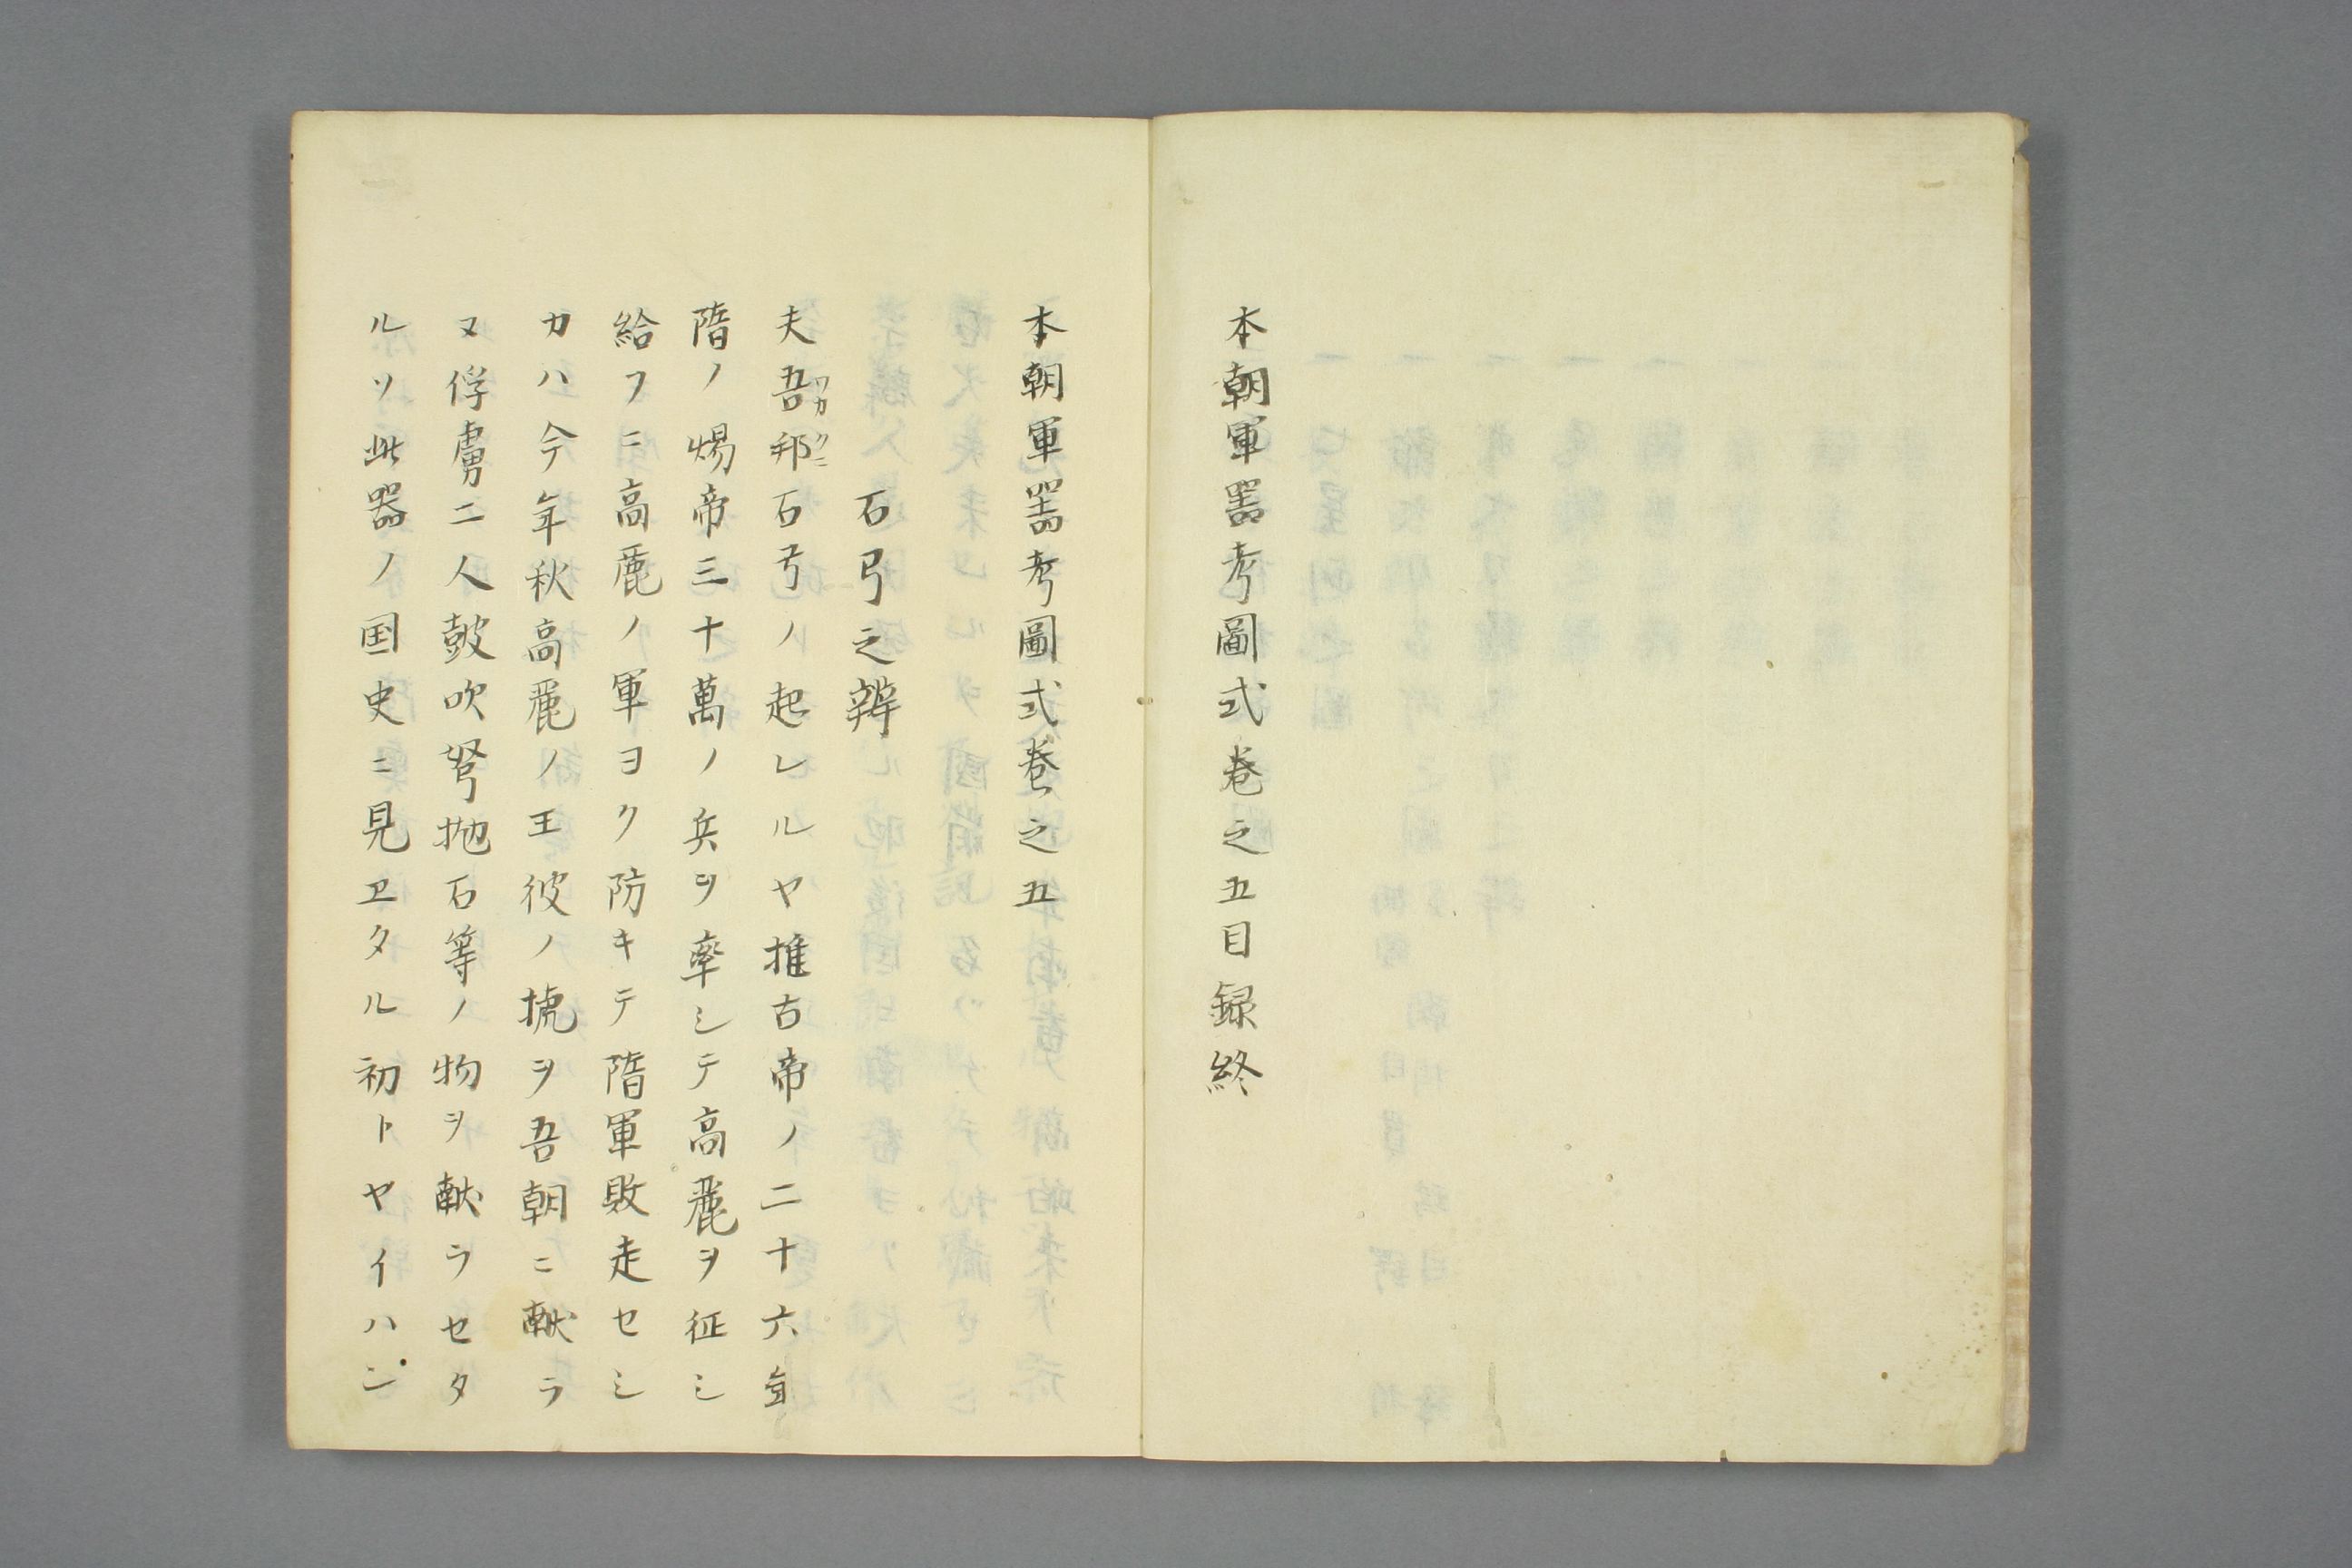 本朝軍噐考圖式卷之五目録終
本朝軍噐考圖式卷之五
石弓之辨
夫吾ワカ邦クニ石弓ノ起レルヤ推古帝ノ二十六年
隋ノ煬帝三十萬ノ兵ヲ率シテ高麗ヲ征シ
給フニ高麗ノ軍ヨク防キテ隋軍敗走セシ
カハ今年秋高麗ノ王彼ノ擄ヲ吾朝ニ献ラ
ヌ俘虜二人鼓吹弩抛石等ノ物ヲ献ラセタ
ルソ此器ノ国史ニ見ヱタル初トヤイハン